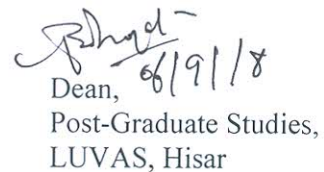 06/9/18
Dean,
Post-Graduate Studies,
LUVAS, Hisar